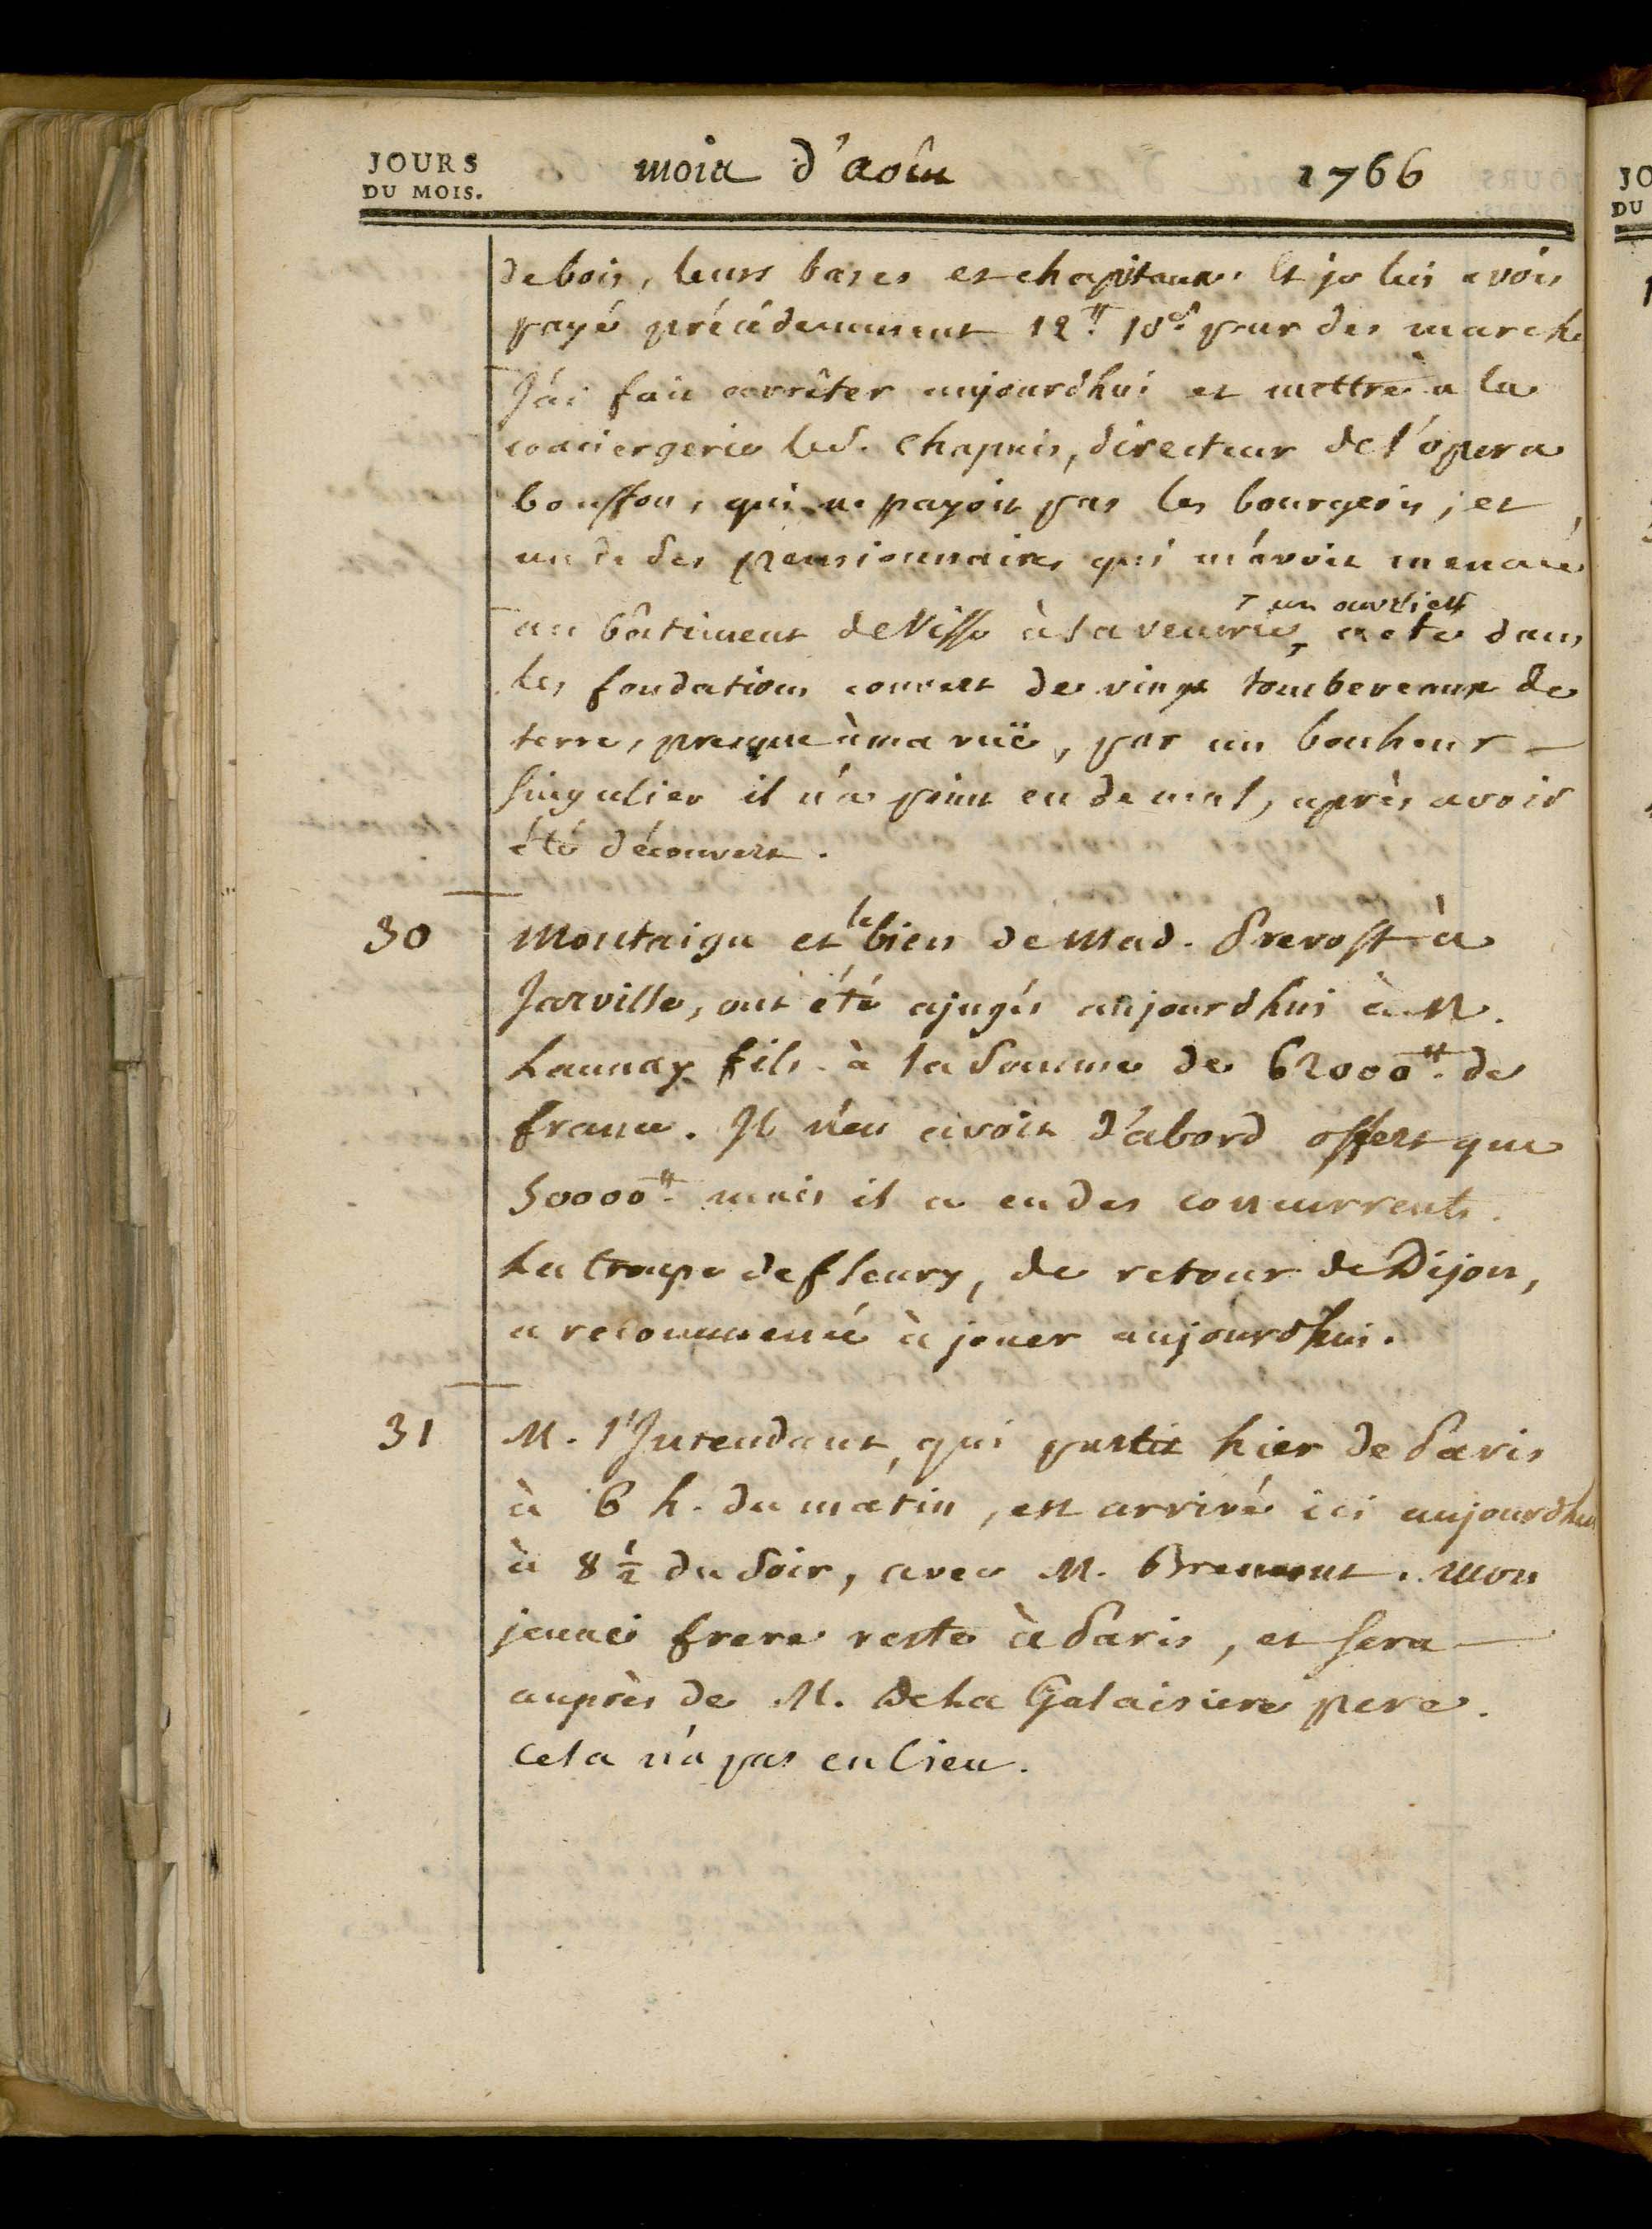 JOURS
DU MOIS.
mois d'août 1766
de bois, leurs bases et chapitaux. Et je lui avois
payé précédemment 12.tt 10.s pour des marche
J'ai fait arrêter aujourdhui et mettre à la
conciergerie le S. Chapuis, directeur de l'opera
bouffon, qui ne payoit pas les bourgeois; et
un de ses pensionnaires qui m'avoit menacé
un ouvrier
au bâtiment de Nisse à la venerie, a été dans
les fondations couvert de vingt tombereaux de
terre, presque à ma vuë, par un bonheur
singulier il n'a point eu de mal, après avoir
été découvert.
30 Montaigu et le bien de Mad. Prevost à
Jarville, ont été ajugés aujourdhui à M.
Launay fils à la somme de 62000tt. de
france. Il n'en avoit d'abord offert que
50000tt. mais il a eu des concurrents.
La troupe de fleury, de retour de Dijon,
a recommencé à jouer aujourdhui.
31 M. l'Intendant, qui partit hier de Paris
à 6 h. du matin, est arrivé ici aujourdhui
à 8 1/2 du soir, avec M. Bremont. mon
jeune frere reste à Paris, et sera
auprès de M. De La Galaisiere pere.
Cela n'a pas eu lieu.
JO
DU